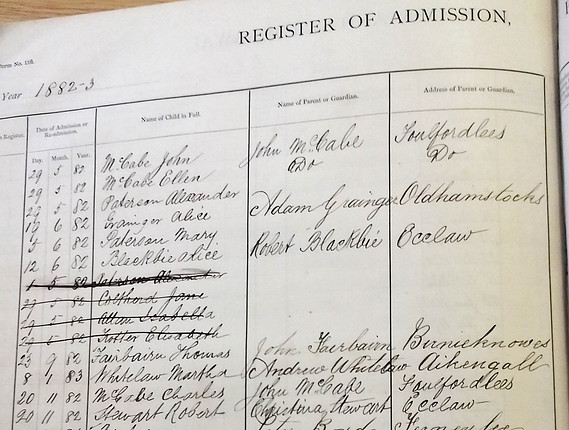 REGISTER OF ADMISSION,
Form No. 138.
Year 1882-3
Register. Date of Admission or Re-admission. Name of Child in Full. Name of Parent or Guardian. Address of Parent or Guardian.
Day. Month. Year.
29 5 82 McCabe John John McCabe Foulfordlees
29 5 82 McCabe Ellen Do Do
29 5 82 Paterson Alexander
19 6 82 Grainger Alice Adam Grainger Oldhamstocks
5 6 82 Paterson Mary
12 6 82 Blackbie Alice Robert Blackbie Ecclaw
1 5 82 Paterson Alexander
29 5 82 Jane
29 5 82 Isabella
29 5 82 Trotter Elizabeth
25 9 82 Fairbairn Thomas John Fairbairn Birnieknowes
8 1 83 Whitelaw Martha Andrew Whitelaw Aikengall
20 11 82 McCabe Charles John McCabe Foulfordlees
20 11 82 Stewart Robert Christina Stewart Ecclaw